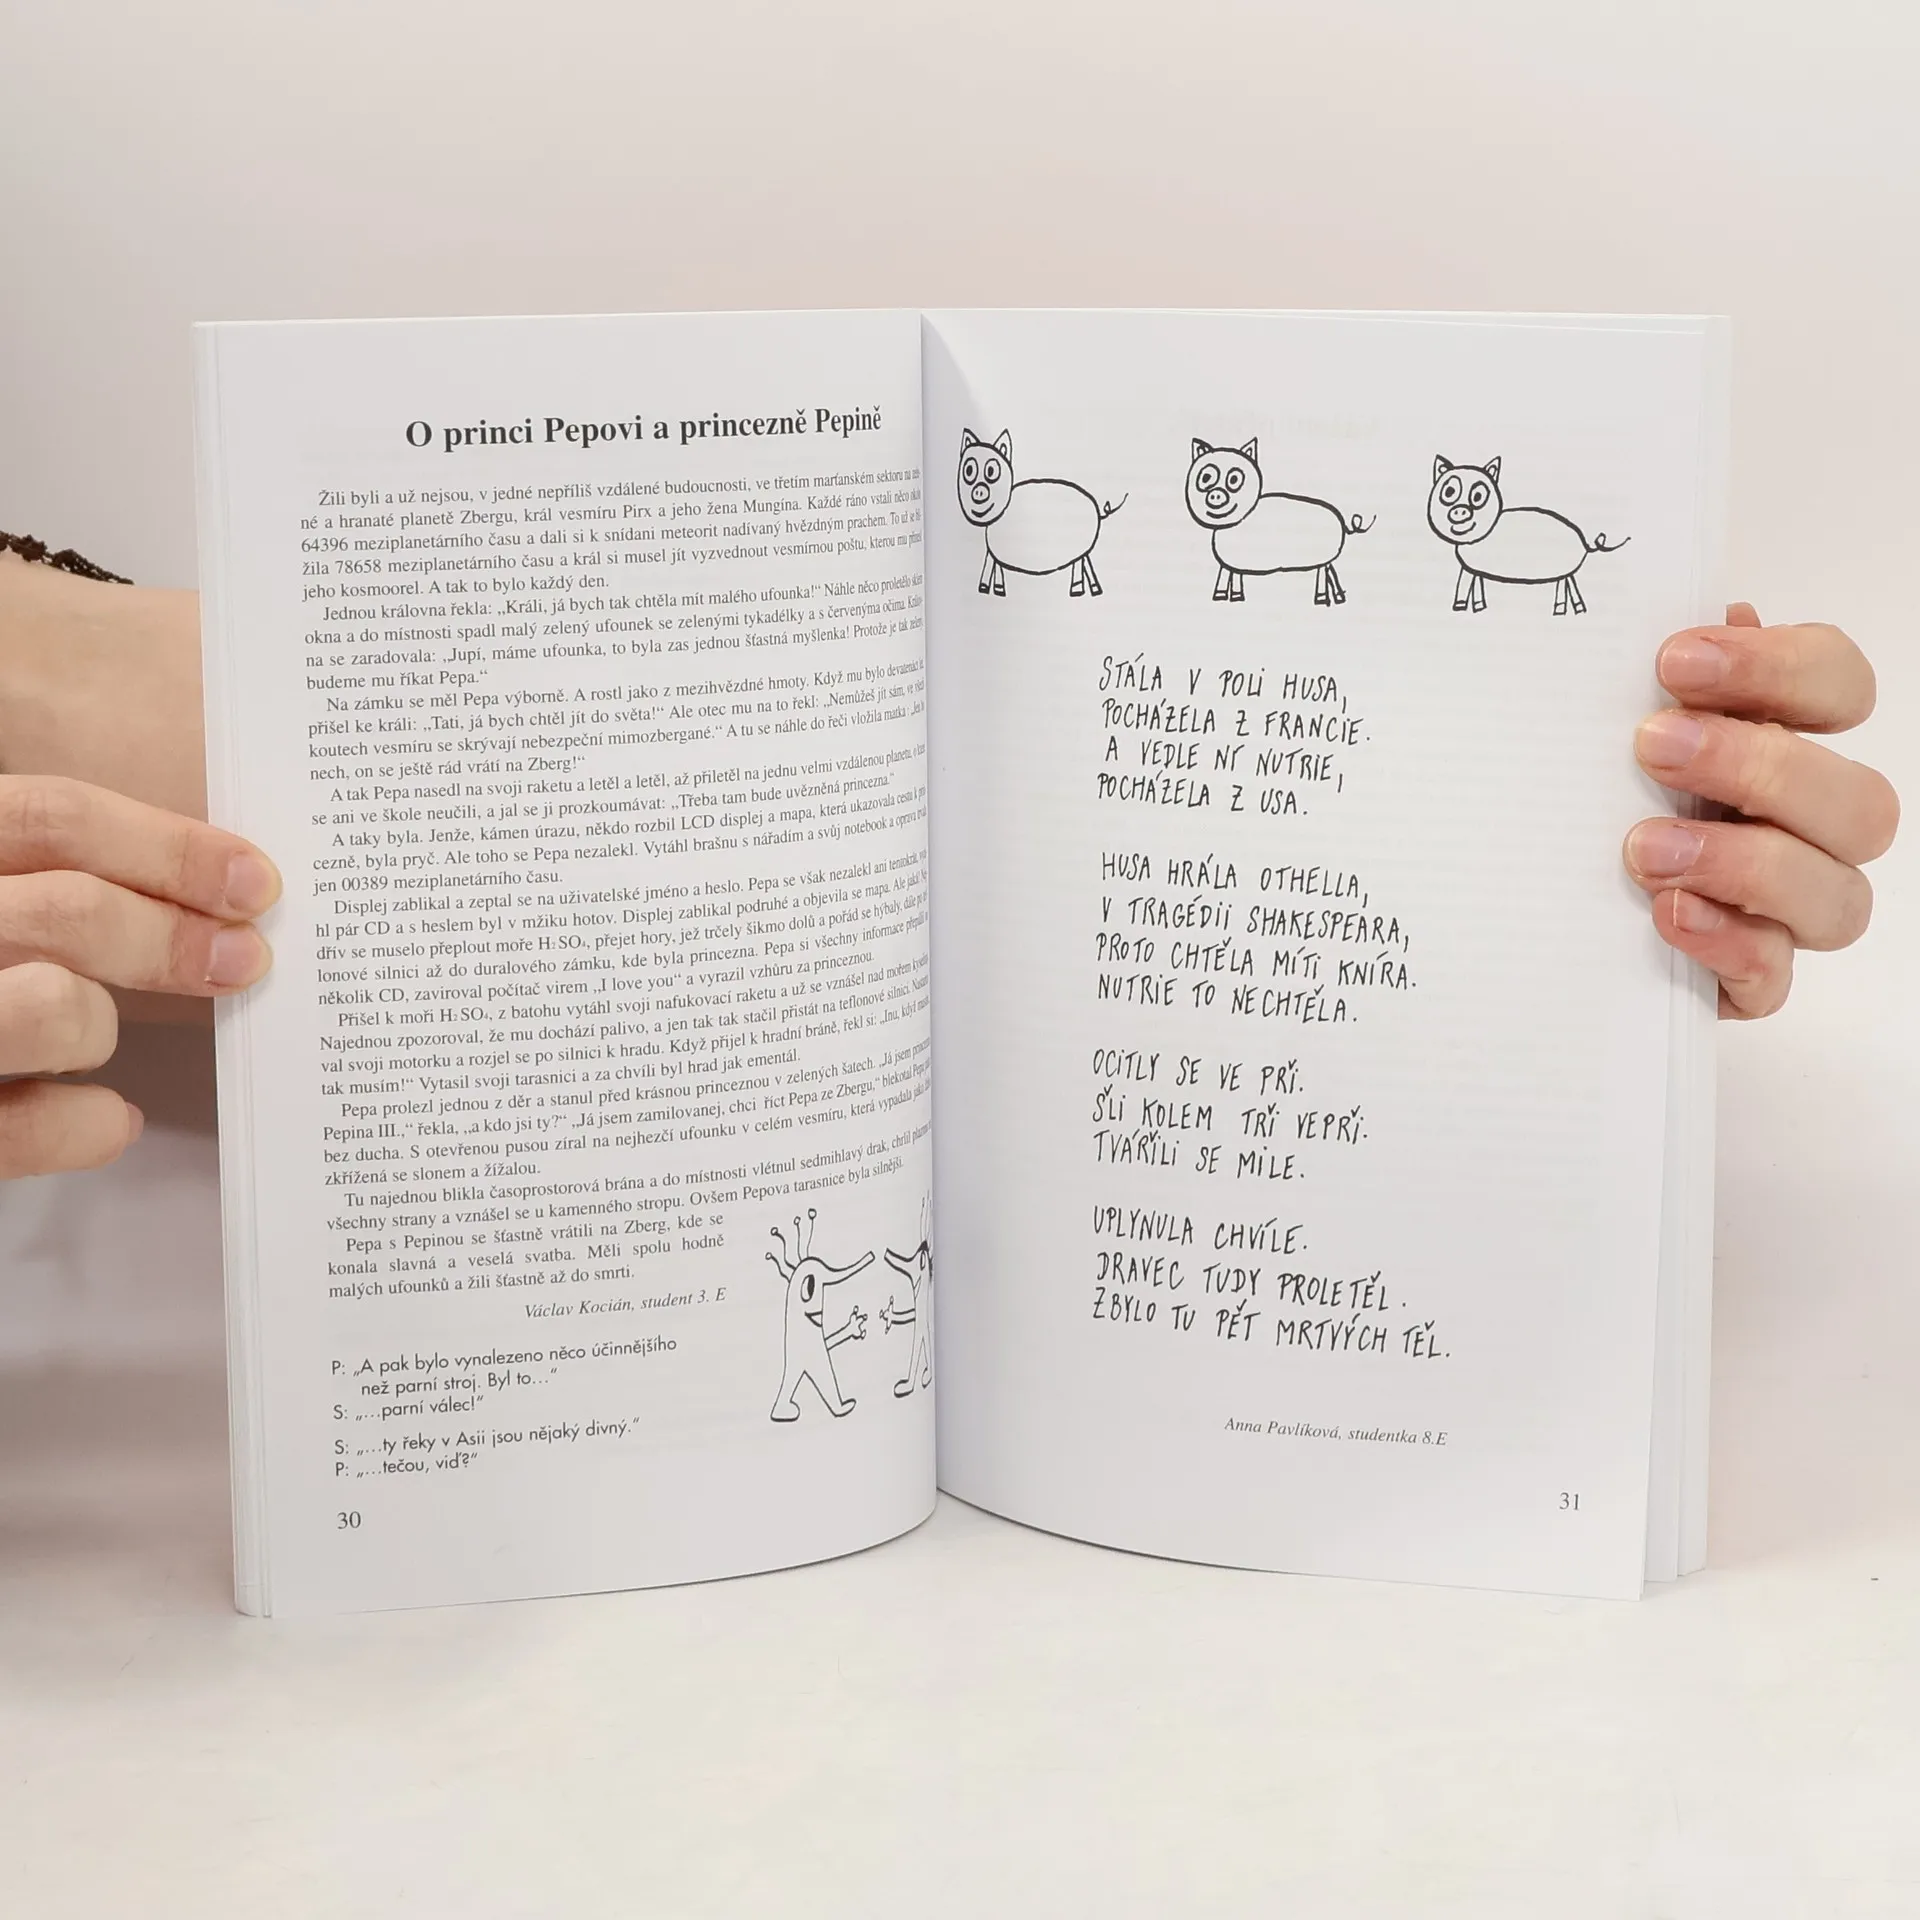 O princi Pepovi a princezně Pepině
Žili byli a už nejsou, v jedné nepříliš vzdálené budoucnosti, ve třetím marťanském sektoru na
né a hranaté planetě Zbergu, král vesmíru Pirx a jeho žena Mungína. Každé ráno vstali něco
64396 meziplanetárního času a dali si k snídani meteorit nadívaný hvězdným prachem. To už se
žila 78658 meziplanetárního času a král si musel jít vyzvednout vesmírnou poštu, kterou mu
jeho kosmoorel. A tak to bylo každý den.
Jednou královna řekla: „Králi, já bych tak chtěla mít malého ufounka!“ Náhle něco proletělo
okna a do místnosti spadl malý zelený ufounek se zelenými tykadélky a s červenýma očima.
na se zaradovala: „Jupí, máme ufounka, to byla zas jednou šťastná myšlenka! Protože je tak
budeme mu říkat Pepa.“
Na zámku se měl Pepa výborně. A rostl jako z mezihvězdné hmoty. Když mu bylo devatenáct
přišel ke králi: „Tati, já bych chtěl jít do světa!“ Ale otec mu na to řekl: „Nemůžeš jít sám, ve
koutech vesmíru se skrývají nebezpeční mimozbergané.“ A tu se náhle do řeči vložila matka:
nech, on se ještě rád vrátí na Zberg!“
A tak Pepa nasedl na svoji raketu a letěl a letěl, až přiletěl na jednu velmi vzdálenou planetu, o
se ani ve škole neučili, a jal se ji prozkoumávat: „Třeba tam bude uvězněná princezna.“
A taky byla. Jenže, kámen úrazu, někdo rozbil LCD displej a mapa, která ukazovala cestu k
cezně, byla pryč. Ale toho se Pepa nezalekl. Vytáhl brašnu s nářadím a svůj notebook a oprava
jen 00389 meziplanetárního času.
Displej zablikal a zeptal se na uživatelské jméno a heslo. Pepa se však nezalekl ani tentokrát,
hl pár CD a s heslem byl v mžiku hotov. Displej zablikal podruhé a objevila se mapa. Ale jaká!
dřív se muselo přeplout moře H₂SO₄, přejet hory, jež trčely šikmo dolů a pořád se hýbaly, dále po
lonové silnici až do duralového zámku, kde byla princezna. Pepa si všechny informace
několik CD, zaviroval počítač virem „I love you“ a vyrazil vzhůru za princeznou.
Přišel k moři H₂SO₄, z batohu vytáhl svoji nafukovací raketu a už se vznášel nad mořem
Najednou zpozoroval, že mu dochází palivo, a jen tak tak stačil přistát na teflonové silnici.
val svoji motorku a rozjel se po silnici k hradu. Když přijel k hradní bráně, řekl si: „Inu, když
tak musím!“ Vytasil svoji tarasnici a za chvíli byl hrad jak ementál.
Pepa prolezl jednou z děr a stanul před krásnou princeznou v zelených šatech. „Já jsem
Pepina III.,“ řekla, „a kdo jsi ty?“ „Já jsem zamilovanej, chci říct Pepa ze Zbergu,“ blekotal Pepa
bez ducha. S otevřenou pusou zíral na nejhezčí ufounku v celém vesmíru, která vypadala jako
zkřížená se slonem a žížalou.
Tu najednou blikla časoprostorová brána a do místnosti vlétnul sedmihlavý drak, chrlil
všechny strany a vznášel se u kamenného stropu. Ovšem Pepova tarasnice byla silnější.
Pepa s Pepinou se šťastně vrátili na Zberg, kde se
konala slavná a veselá svatba. Měli spolu hodně
malých ufounků a žili šťastně až do smrti.
Václav Kocián, student 3. E
P: „A pak bylo vynalezeno něco účinnějšího
než parní stroj. Byl to…“
S: „…parní válec!“
S: „…ty řeky v Asii jsou nějaký divný.“
P: „…tečou, viď?“
30
STÁLA V POLI HUSA,
POCHÁZELA Z FRANCIE.
A VEDLE NÍ NUTRIE,
POCHÁZELA Z USA.
HUSA HRÁLA OTHELLA,
V TRAGÉDII SHAKESPEARA,
PROTO CHTĚLA MÍTI KNÍRA.
NUTRIE TO NECHTĚLA.
OCITLY SE VE PŘI.
ŠLI KOLEM TŘI VEPŘI.
TVÁŘILI SE MILE.
UPLYNULA CHVÍLE.
DRAVEC TUDY PROLETĚL.
ZBYLO TU PĚT MRTVÝCH TĚL.
Anna Pavlíková, studentka 8.E
31